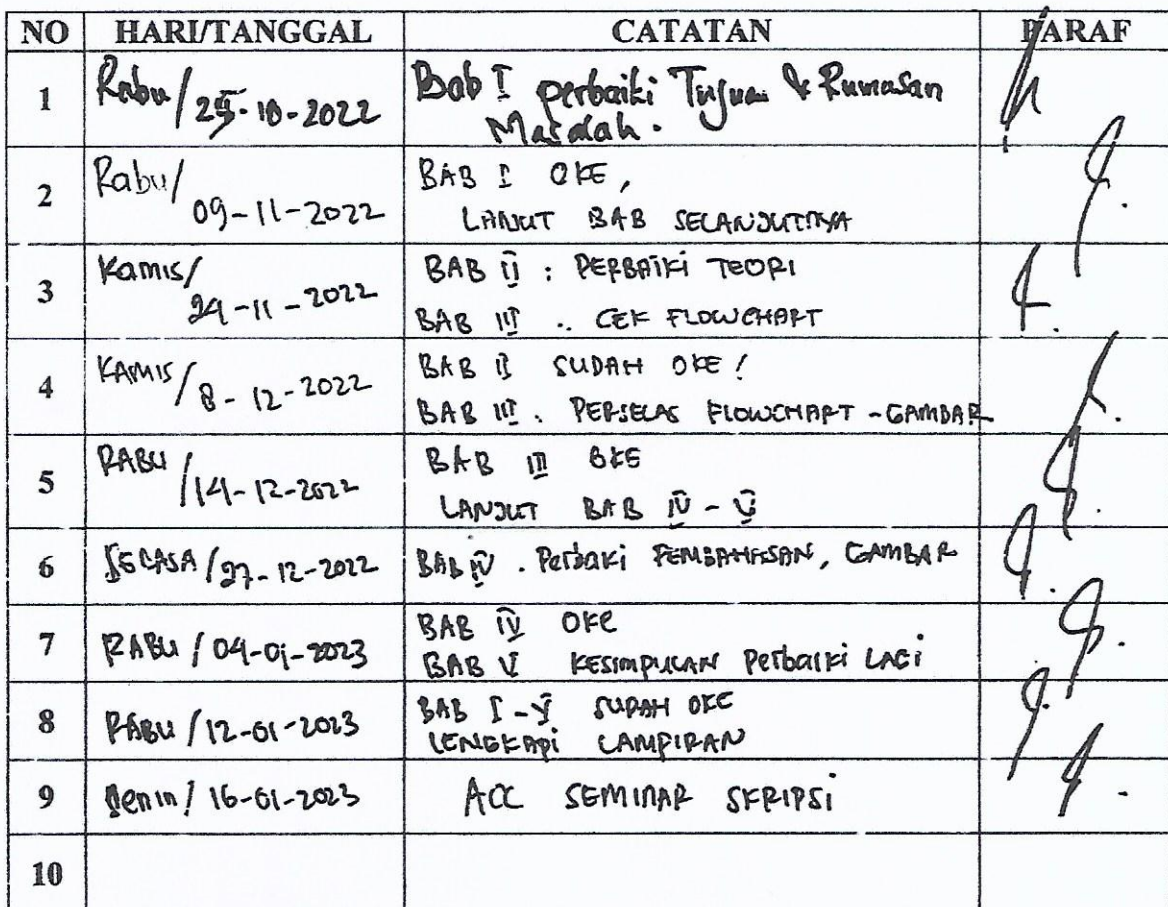 NO HARI/TANGGAL CATATAN PARAF
1 Rabu/ -10-2022 Bab I perbaiki Tujuan & Rumusan
Masalah.
2 Rabu/ 09-11-2022 BAB I OKE,
LANJUT BAB SELANJUTNYA
3 Kamis/ 24-11-2022 BAB II : PERBAIKI TEORI
BAB III : CEK FLOWCHART
4 KAMIS/ 8-12-2022 BAB II SUDAH OKE!
BAB III. PERJELAS FLOWCHART - GAMBAR
5 RABU/ 14-12-2022 BAB III OKE
LANJUT BAB IV - V
6 SELASA/ 27-12-2022 BAB IV. Perbaki PEMBAHASAN, GAMBAR
7 RABU / 04-01-2023 BAB IV OKE
BAB V KESIMPULAN Perbaiki LAGI
8 RABU / 12-01-2023 BAB I - V SUDAH OKE
LENGKAPI LAMPIRAN
9 Senin/ 16-01-2023 ACC SEMINAR SKRIPSI
10